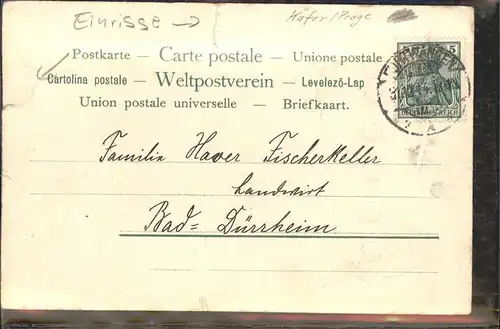 Einrisse → Käfer/Präge
Postkarte — Carte postale — Unione postale
Cartolina postale — Weltpostverein — Levelező-Lap
Union postale universelle — Briefkaart.
5
Familie Haver Fischerkeller
Landwirt
Bad=Dürrheim